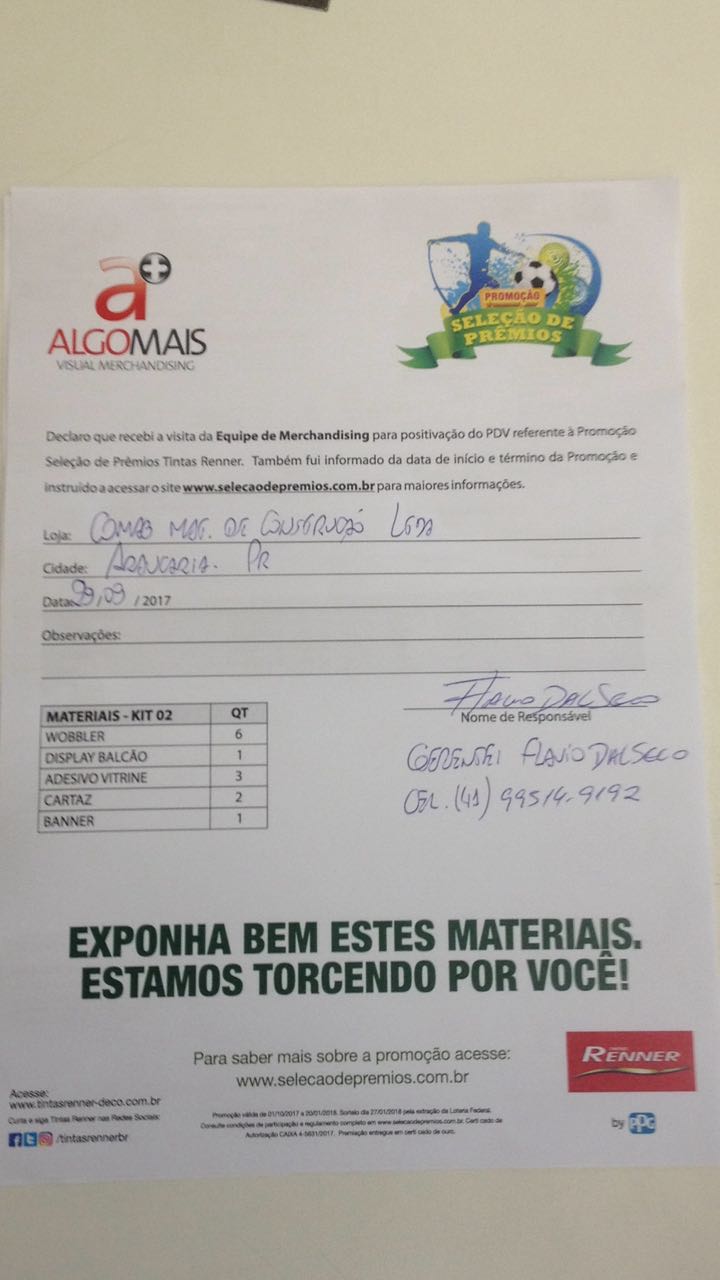 a+
ALGOMAIS
VISUAL MERCHANDISING
PROMOÇÃO
SELEÇÃO DE
PRÊMIOS
Declaro que recebi a visita da Equipe de Merchandising para positivação do PDV referente à Promoção
Seleção de Prêmios Tintas Renner. Também fui informado da data de início e término da Promoção e
instruído a acessar o site www.selecaodepremios.com.br para maiores informações.
Loja: COMAB MAT. DE CONSTRUÇÃO LTDA
Cidade: ARAUCARIA. PR
Data: 29/09 / 2017
Observações:
FLAVIO DALSECO
Nome de Responsável
MATERIAIS - KIT 02 QT
WOBBLER 6
DISPLAY BALCÃO 1
ADESIVO VITRINE 3
CARTAZ 2
BANNER 1
FLAVIO DALSECO
CEL. (41) 99514-9192
EXPONHA BEM ESTES MATERIAIS.
ESTAMOS TORCENDO POR VOCÊ!
Para saber mais sobre a promoção acesse:
www.selecaodepremios.com.br
RENNER
by PPG
Acesse:
www.tintasrenner-deco.com.br
Curta e siga Tintas Renner nas Redes Sociais:
/tintasrennerbr
Promoção válida de 01/10/2017 a 20/01/2018. Sorteio dia 27/01/2018 pela extração da Loteria Federal.
Consulte condições de participação e regulamento completo em www.selecaodepremios.com.br. Certi cado de
Autorização CAIXA 4-5631/2017. Premiação entregue em certi cado de ouro.